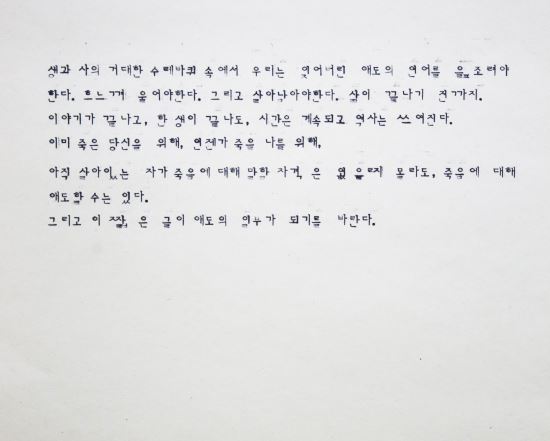 생과 사의 거대한 수레바퀴 속에서 우리는 잊어버린 애도의 언어를 읊조려야
한다. 흐느끼게 울어야한다. 그리고 살아남아야한다. 삶이 끝나기 전까지.
이야기가 끝나고, 한 생이 끝나도, 시간은 계속되고 역사는 쓰여진다.
이미 죽은 당신을 위해, 언젠가 죽을 나를 위해,
아직 살아있는 자가 죽음에 대해 말할 자격 은 없을지 몰라도, 죽음에 대해
애도할 수는 있다.
그리고 이 짧은 글이 애도의 일부가 되기를 바란다.